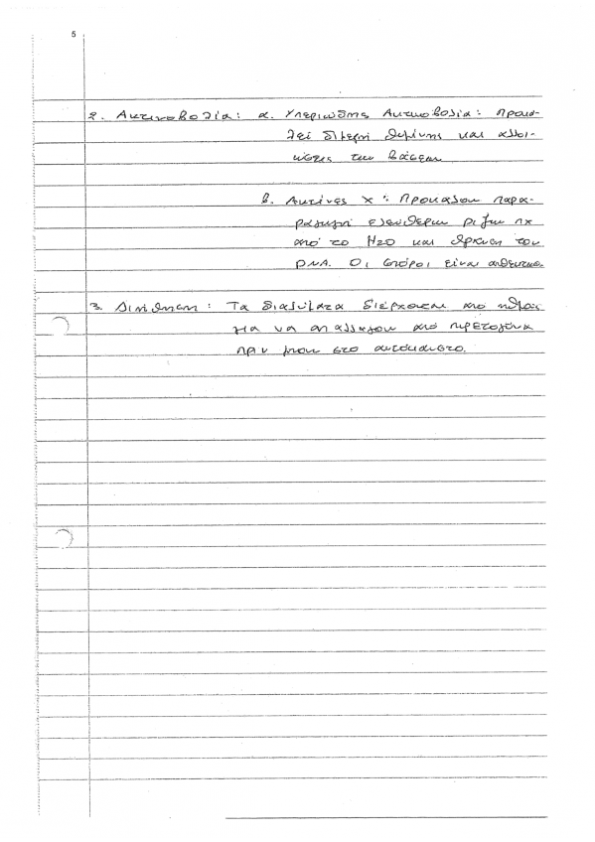 5
2. Ακτινοβολία: α. Υπεριώδης Ακτινοβολία: Προκα-
λεί διμερή θυμίνης και αλλοι-
ώσεις των βάσεων
β. Ακτίνες Χ: Προκαλουν παρα-
ελευθερων ριζων πχ
από το H2O και θραυση του
DNA. Οι σπόροι είναι ανθεκτικοι
3. Διηθηση: Τα διαλύματα διέρχονται απο ηθμους
για να απαλλαγουν από πυρετογονα
πριν μπουν στο αυτοκαυστο.